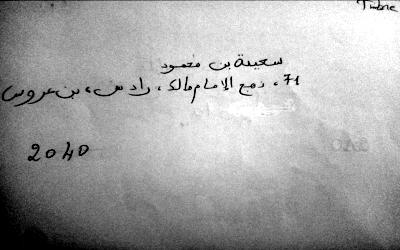 Timbre
سعيدة بن محمود
71، نهج الإمام مالك، رادس، بن عروس
2040